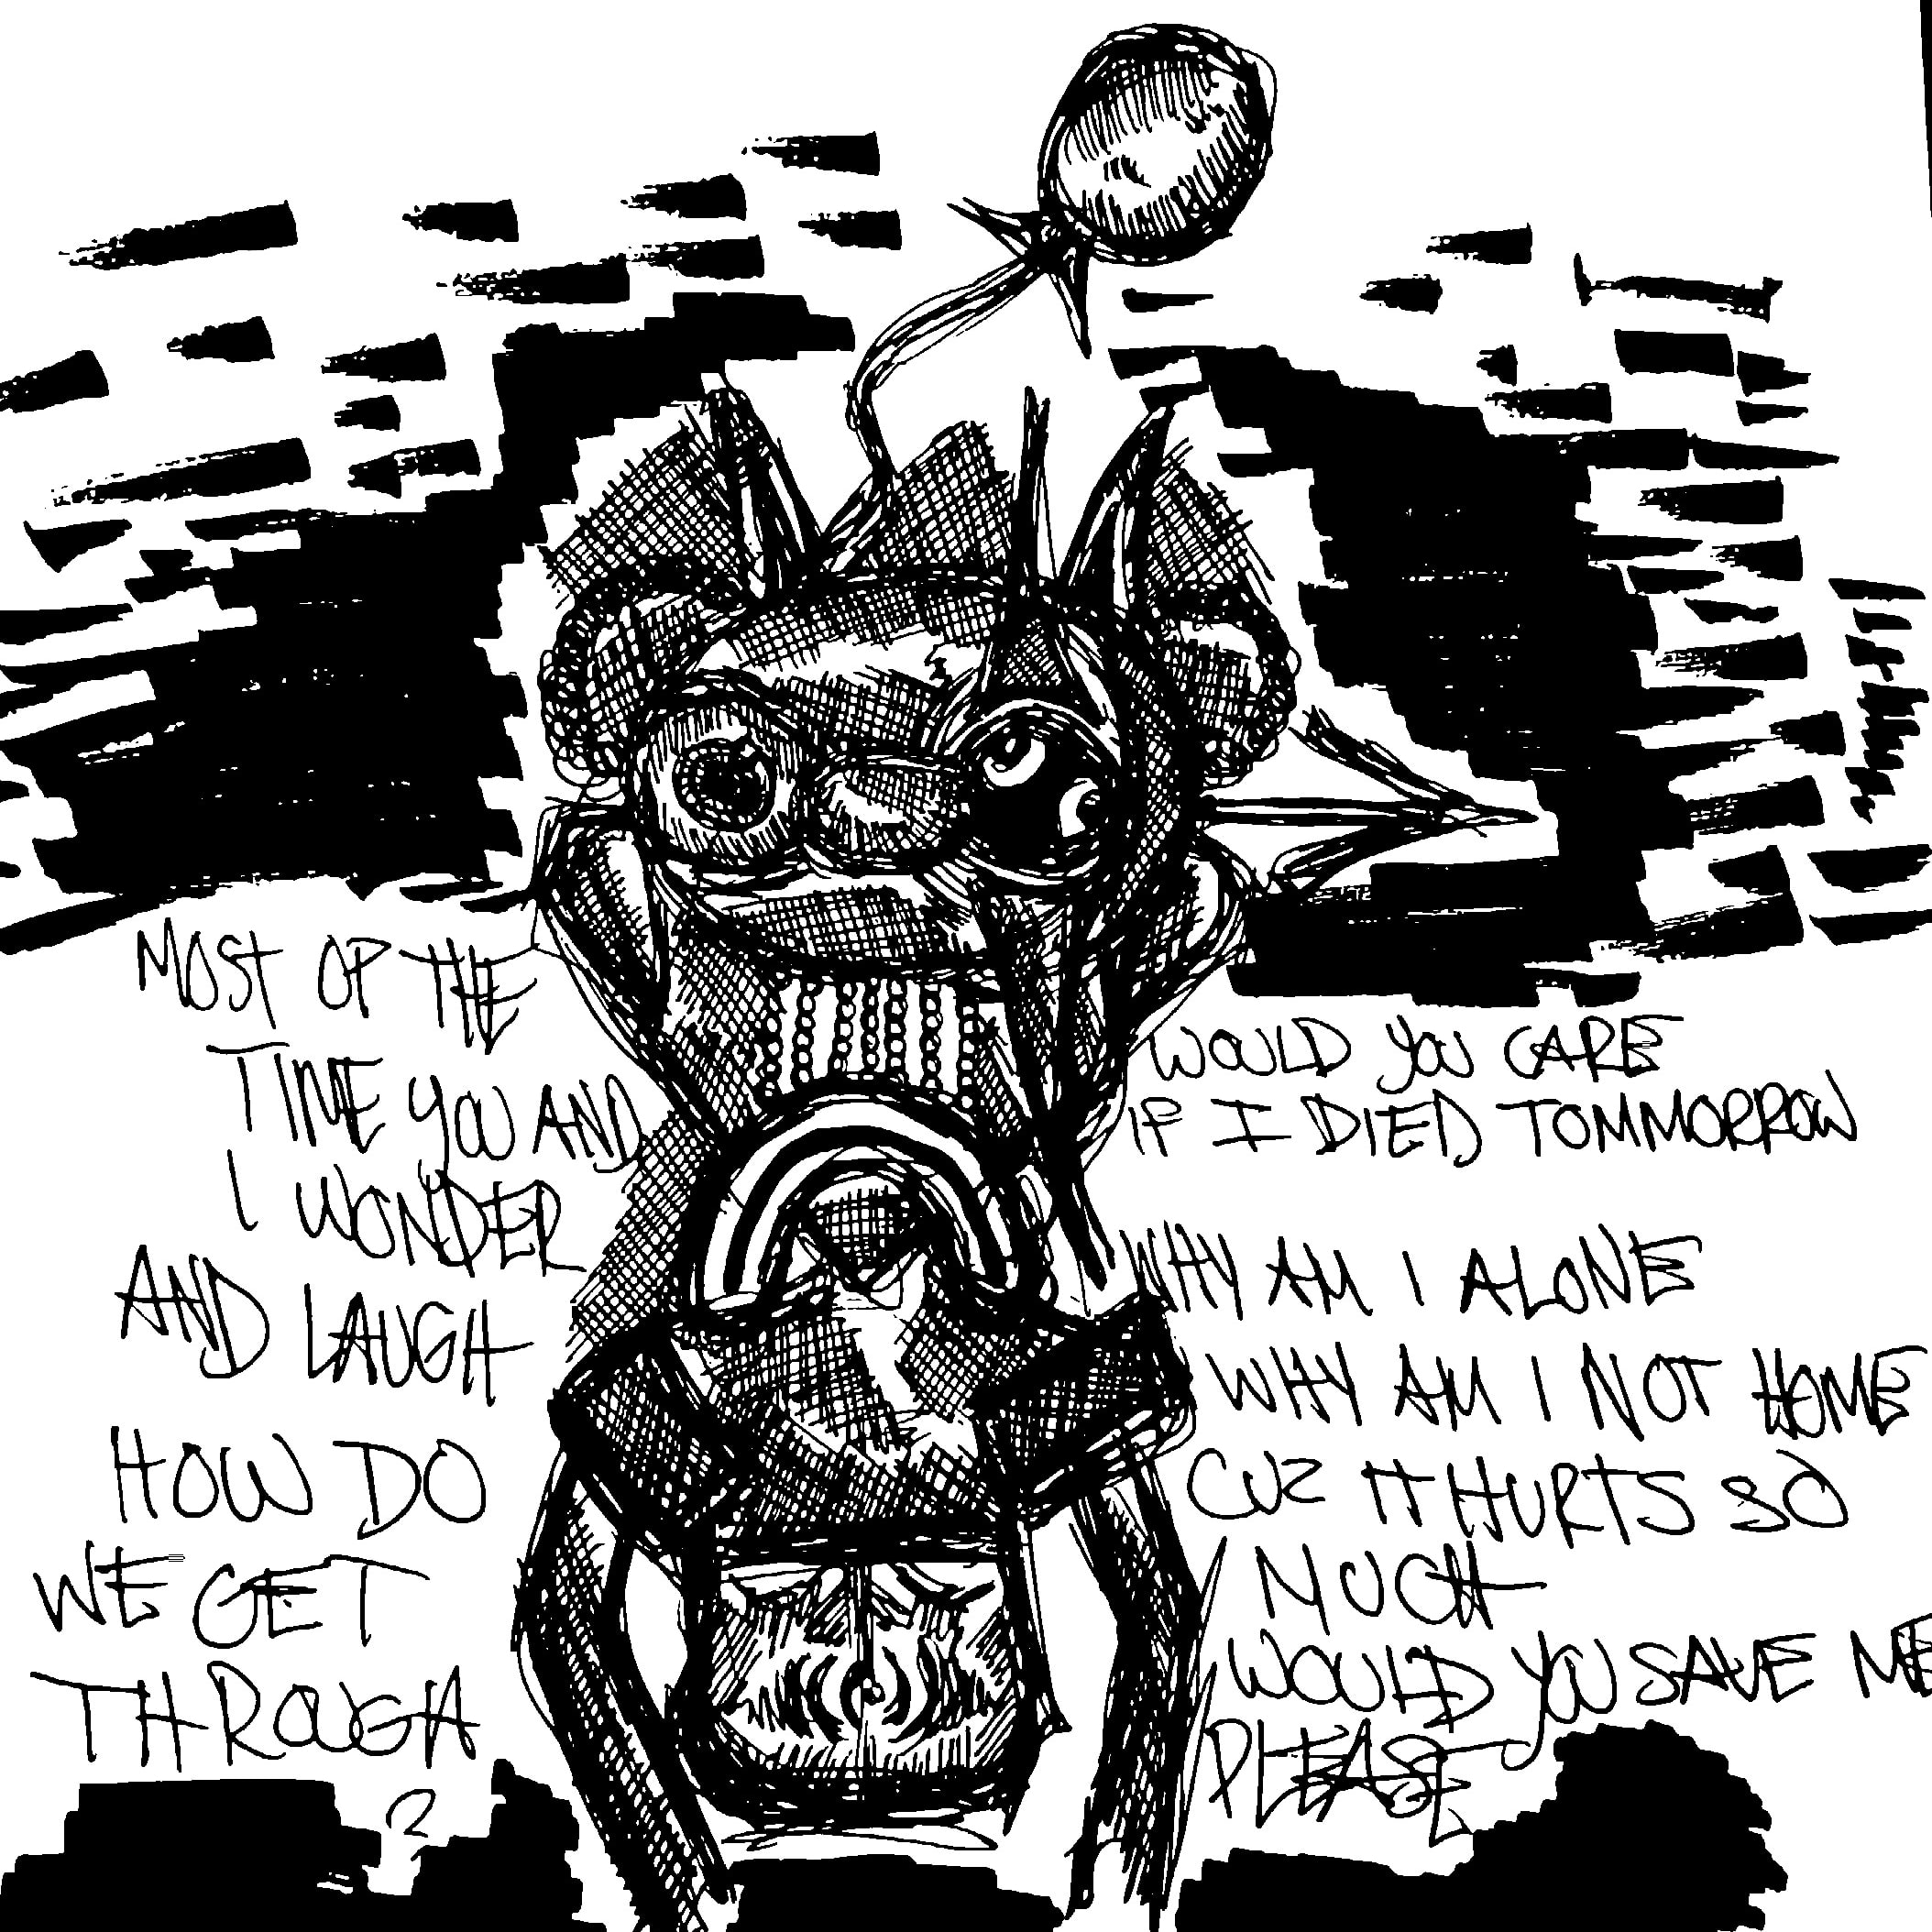 MOST OF THE
TIME YOU AND
I WONDER
AND LAUGH
HOW DO
WE GET
THROUGH
?
WOULD YOU CARE
IF I DIED TOMMORROW
WHY AM I ALONE
WHY AM I NOT HOME
CUZ IT HURTS SO
MUCH
WOULD YOU SAVE ME
PLEASE